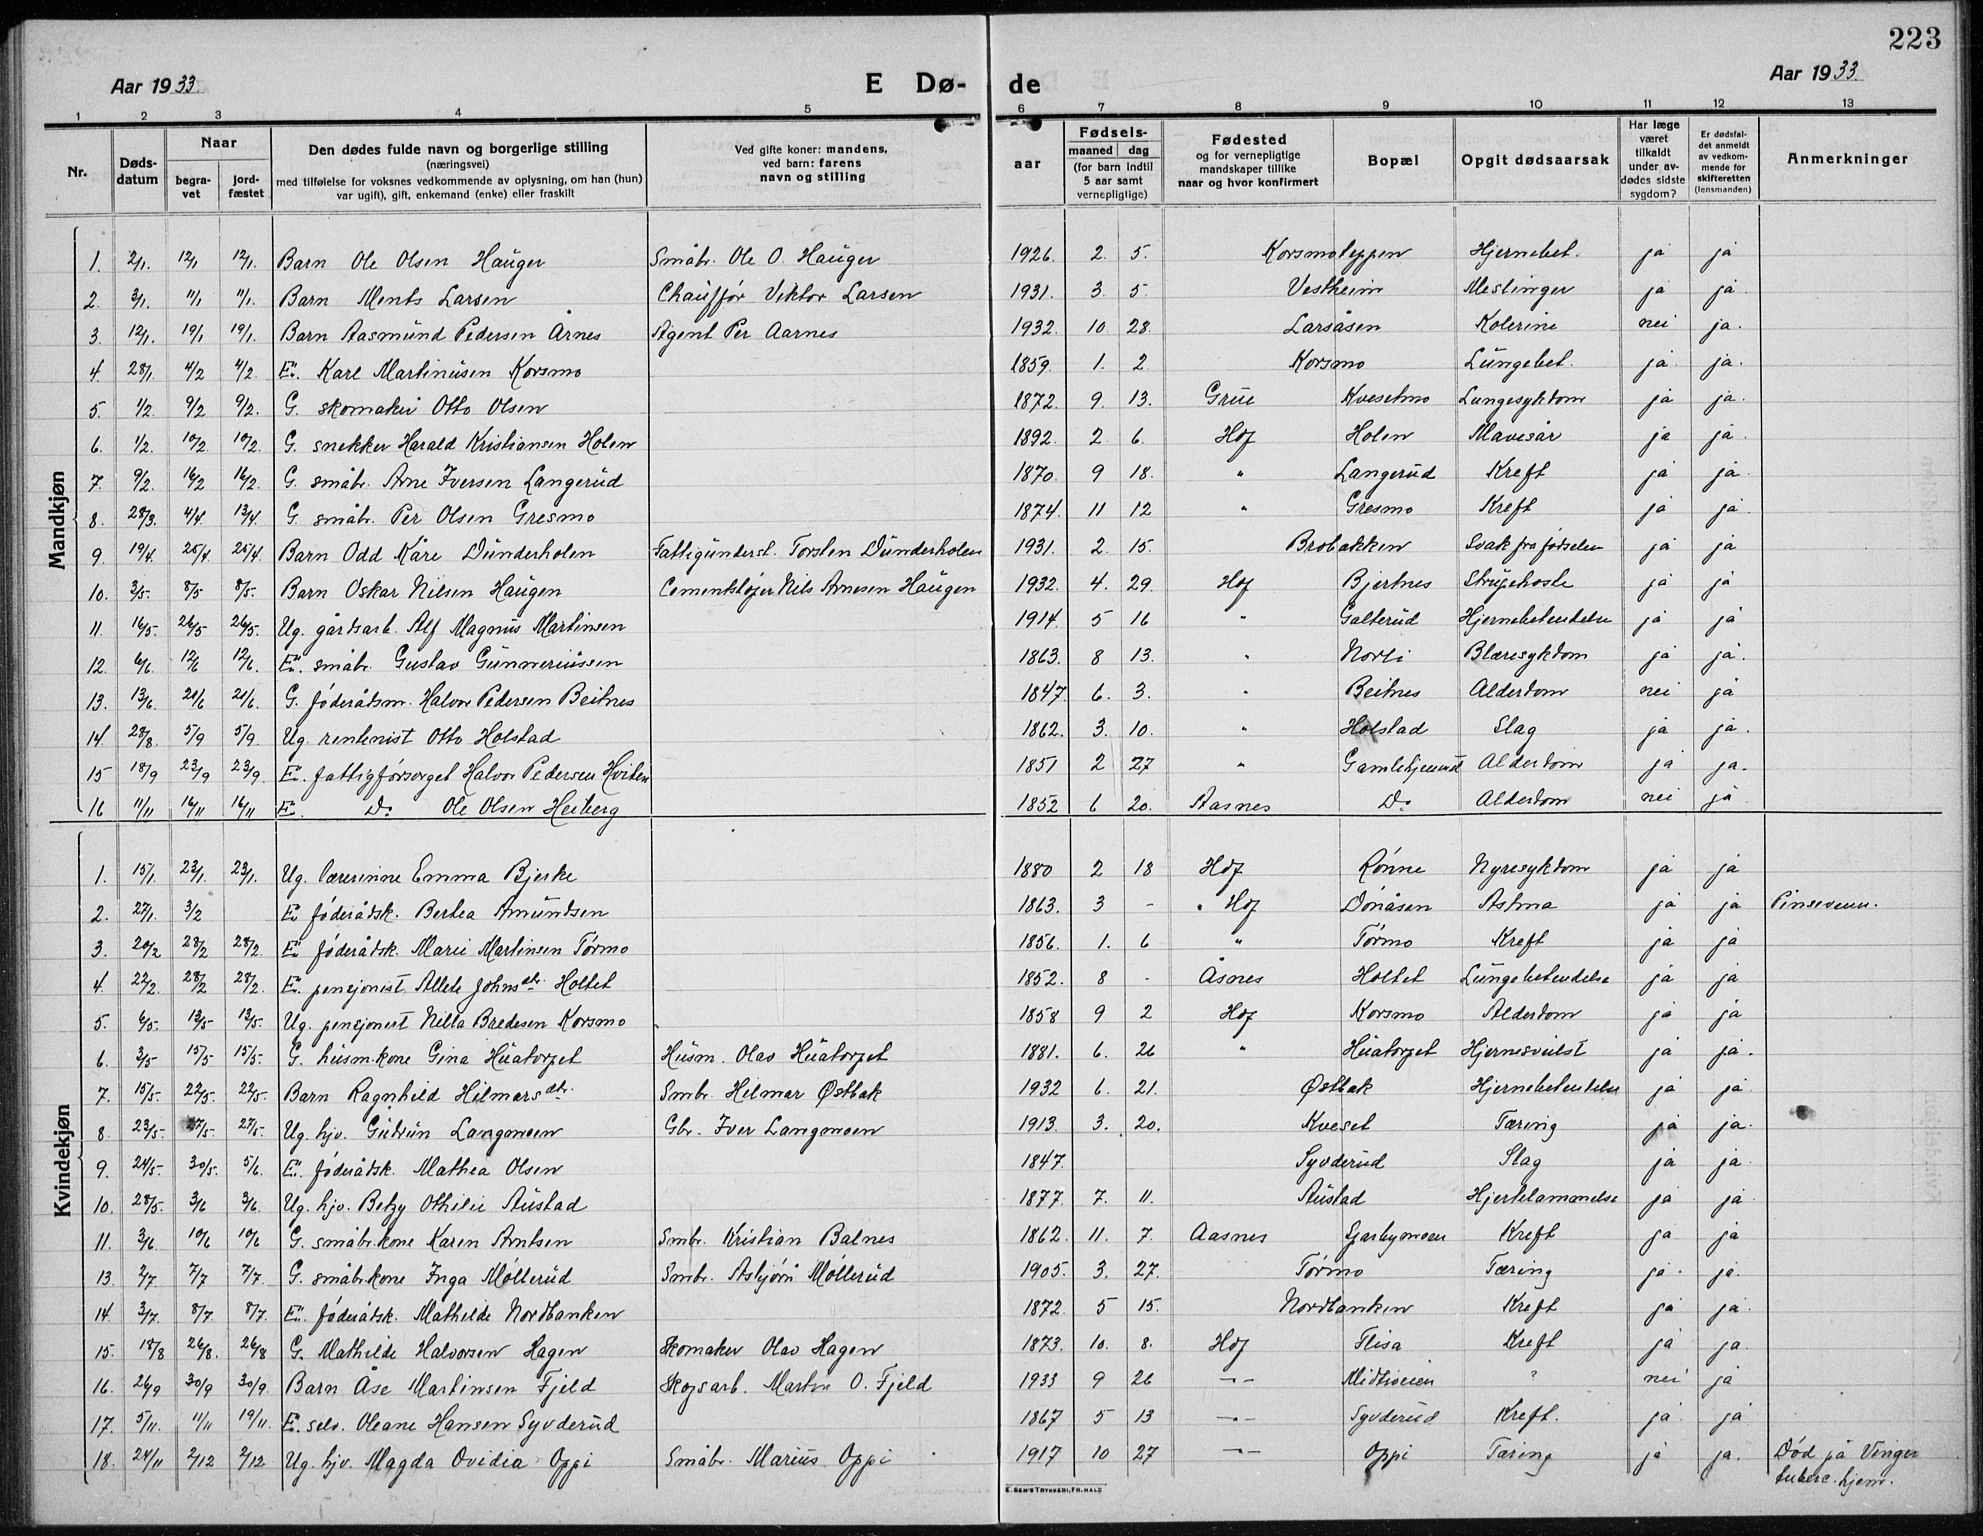 223
Aar 1933. E Dø- de Aar 1933.
1 2 3 4 5 6 7 8 9 10 11 12 13
Nr. Døds-datum Naar begra-vet jord-fæstet Den dødes fulde navn og borgerlige stilling (næringsvei) med tilføielse for voksnes vedkommende av oplysning, om han (hun) var ugift), gift, enkemand (enke) eller fraskilt Ved gifte koner: mandens, ved barn: farens navn og stilling aar Fødsels- maaned dag (for barn indtil 5 aar samt vernepligtige) Fødested og for vernepligtige mandskaper tillike naar og hvor konfirmert Bopæl Opgit dødsaarsak Har læge været tilkaldt under av-dødes sidste sygdom? Er dødsfal-det anmeldt av vedkom-mende for skifteretten (lensmanden) Anmerkninger
Mandkjøn
1. 2/1. 12/1 12/1. Barn Ole Olsen Hauger Småbr. Ole O. Hauger 1926. 2. 5. Korsmoteppen Hjernebet. ja ja
2. 3/1. 11/1 11/1. Barn Ments Larsen Chauffør Viktor Larsen 1931. 3. 5. Vestheim Meslinger ja ja
3. 12/1. 19/1 19/1. Barn Aasmund Pedersen Årnes Agent Per Aarnes 1932. 10. 28. Larsåsen Kolerine nei ja.
4. 28/1. 4/2 4/2. E. Karl Martinusen Korsmo 1859. 1. 2. Korsmo Lungebet. ja ja.
5. 1/2. 9/2 9/2. G. skomaker Otto Olsen 1872. 9. 13. Grue Kvesetmo Lungesykdom ja ja.
6. 1/2. 10/2 10/2. G. snekker Harald Kristiansen Holen 1892. 2. 6. Hof Holen Mavesår ja ja.
7. 9/2. 16/2 16/2. G. småbr. Arne Iversen Langerud 1870. 9 18. " Langerud Kreft ja ja
8. 28/3. 4/4 13/4. G. småbr. Per Olsen Gresmo 1874. 11 12 " Gresmo Kreft ja ja
9 19/4. 25/4 25/4. Barn Odd Kåre Dunderholen Fattigunderst. Torsten Dunderholen 1931. 2. 15. Brobakken Svak fra fødselen ja ja
10. 3/5. 8/5 8/5. Barn Oskar Nilsen Haugen Cementstøper Nils Arnesen Haugen 1932. 4. 29. Hof Bjertnes Strupehoste ja ja
11. 16/5. 26/5 26/5. Ug. gårdsarb. Alf Magnus Martinsen 1914. 5 16 " Galterud Hjernebetendelse ja ja
12. 6/6. 12/6 12/6. E. småbr. Gustav Gunneriussen 1863. 8 13. " Norli Blæresykdom ja ja.
13. 13/6 21/6 21/6. G. føderåtsm. Halvor Pedersen Beitnes 1847. 6. 3. " Beitnes Alderdom nei ja
14. 28/8. 5/9 5/9. Ug. rentenist Otto Holstad 1862. 3. 10. " Holstad Slag ja ja.
15 18/9 23/9 23/9. E. fattigforsørget Halvor Pedersen 1851 2 27 " Gamlehjemmet Alderdom ja ja.
16 11/11 16/11 16/11 E. Do Ole Olsen Heiberg 1852 6 20. Aasnes Do Alderdom nei ja
Kvindekjøn
1. 15/1. 23/1. 23/1. Ug. lærerinne Emma Bjerke 1880 2 18 Hof Rønne Nyresykdom ja ja
2. 27/1. 3/2 E. føderådsk. Berthea Amundsen 1863. 3 - Hof Dønåsen Astma ja ja Pinsevenn.
3. 20/2 28/2 28/2. E. føderådsk. Marie Martinsen Tørmo 1856. 1. 6 " Tørmo Kreft ja ja
4. 22/2. 28/2 28/2. E. pensjonist Johnsdtr. Holtet 1852. 8 - Åsnes Holtet Lungebetendelse ja ja
5. 6/5. 13/5. 13/5. Ug. pensjonist Nilla Bredesen Korsmo 1858 9 2 Hof Korsmo Alderdom ja ja
6. 3/5. 15/5 15/5. G. husm.kone Gina Huatorpet Husm. Olav Huatorpet 1881. 6. 26 " Huatorpet Hjernesvulst ja ja.
7. 15/5. 22/5. 22/5. Barn Ragnhild Hilmarsdtr. Smbr. Hilmar Østbak 1932 6. 21. Østbak Hjernebetendelse ja ja
8. 23/5. 27/5. 27/5. Ug. hjv. Gudrun Langmoen Gbr. Iver Langmoen 1913. 3. 20. Kveset Tæring ja ja.
9. 24/5. 30/5. 5/6. E. føderådsk. Mathea Olsen 1847. Syvderud Slag ja ja.
10. 28/5. 3/6 3/6. Ug. hjv. Betzy Othilie Austad 1877. 7. 11. Austad Hjertelammelse ja ja
11. 3/6. 10/6 10/6 G. småbr.kone Karen Arntsen Smbr. Kristian Balnes 1862. 11. 7. Aasnes Kreft ja ja
13. 2/7 7/7 7/7. G. småbr.kone Inga Møllerud Smbr. Asbjørn Møllerud 1905. 3. 27. Tørmo Tæring ja. ja.
14. 3/7. 8/7 8/7. E. føderådsk. Mathilde Nordbanken 1872. 5 15. Nordbanken Kreft ja ja.
15. 18/8 26/8. 26/8 G. Mathilde Halvorsen Hagen Skomaker Olav Hagen 1873. 10. 8. Hof Flisa Kreft ja ja.
16. 26/9 30/9 30/9. Barn Åse Martinsen Fjeld Skogsarb. Martin O. Fjeld 1933 9 26 -"- Midtveien " nei ja
17. 5/11. 11/11 19/11. E. selv. Oleane Hansen Syvderud 1867 5 13 -"- Syvderud Kreft. ja ja
18. 24/11 2/12 2/12 Ug. hjv. Magda Ovidia Oppi Småbr. Marius Oppi 1917 10 27 -"- Oppi Tæring ja ja. Død på Vinger
tuberc.hjem.
E. SEM'S TRYKKERI, FR. HALD